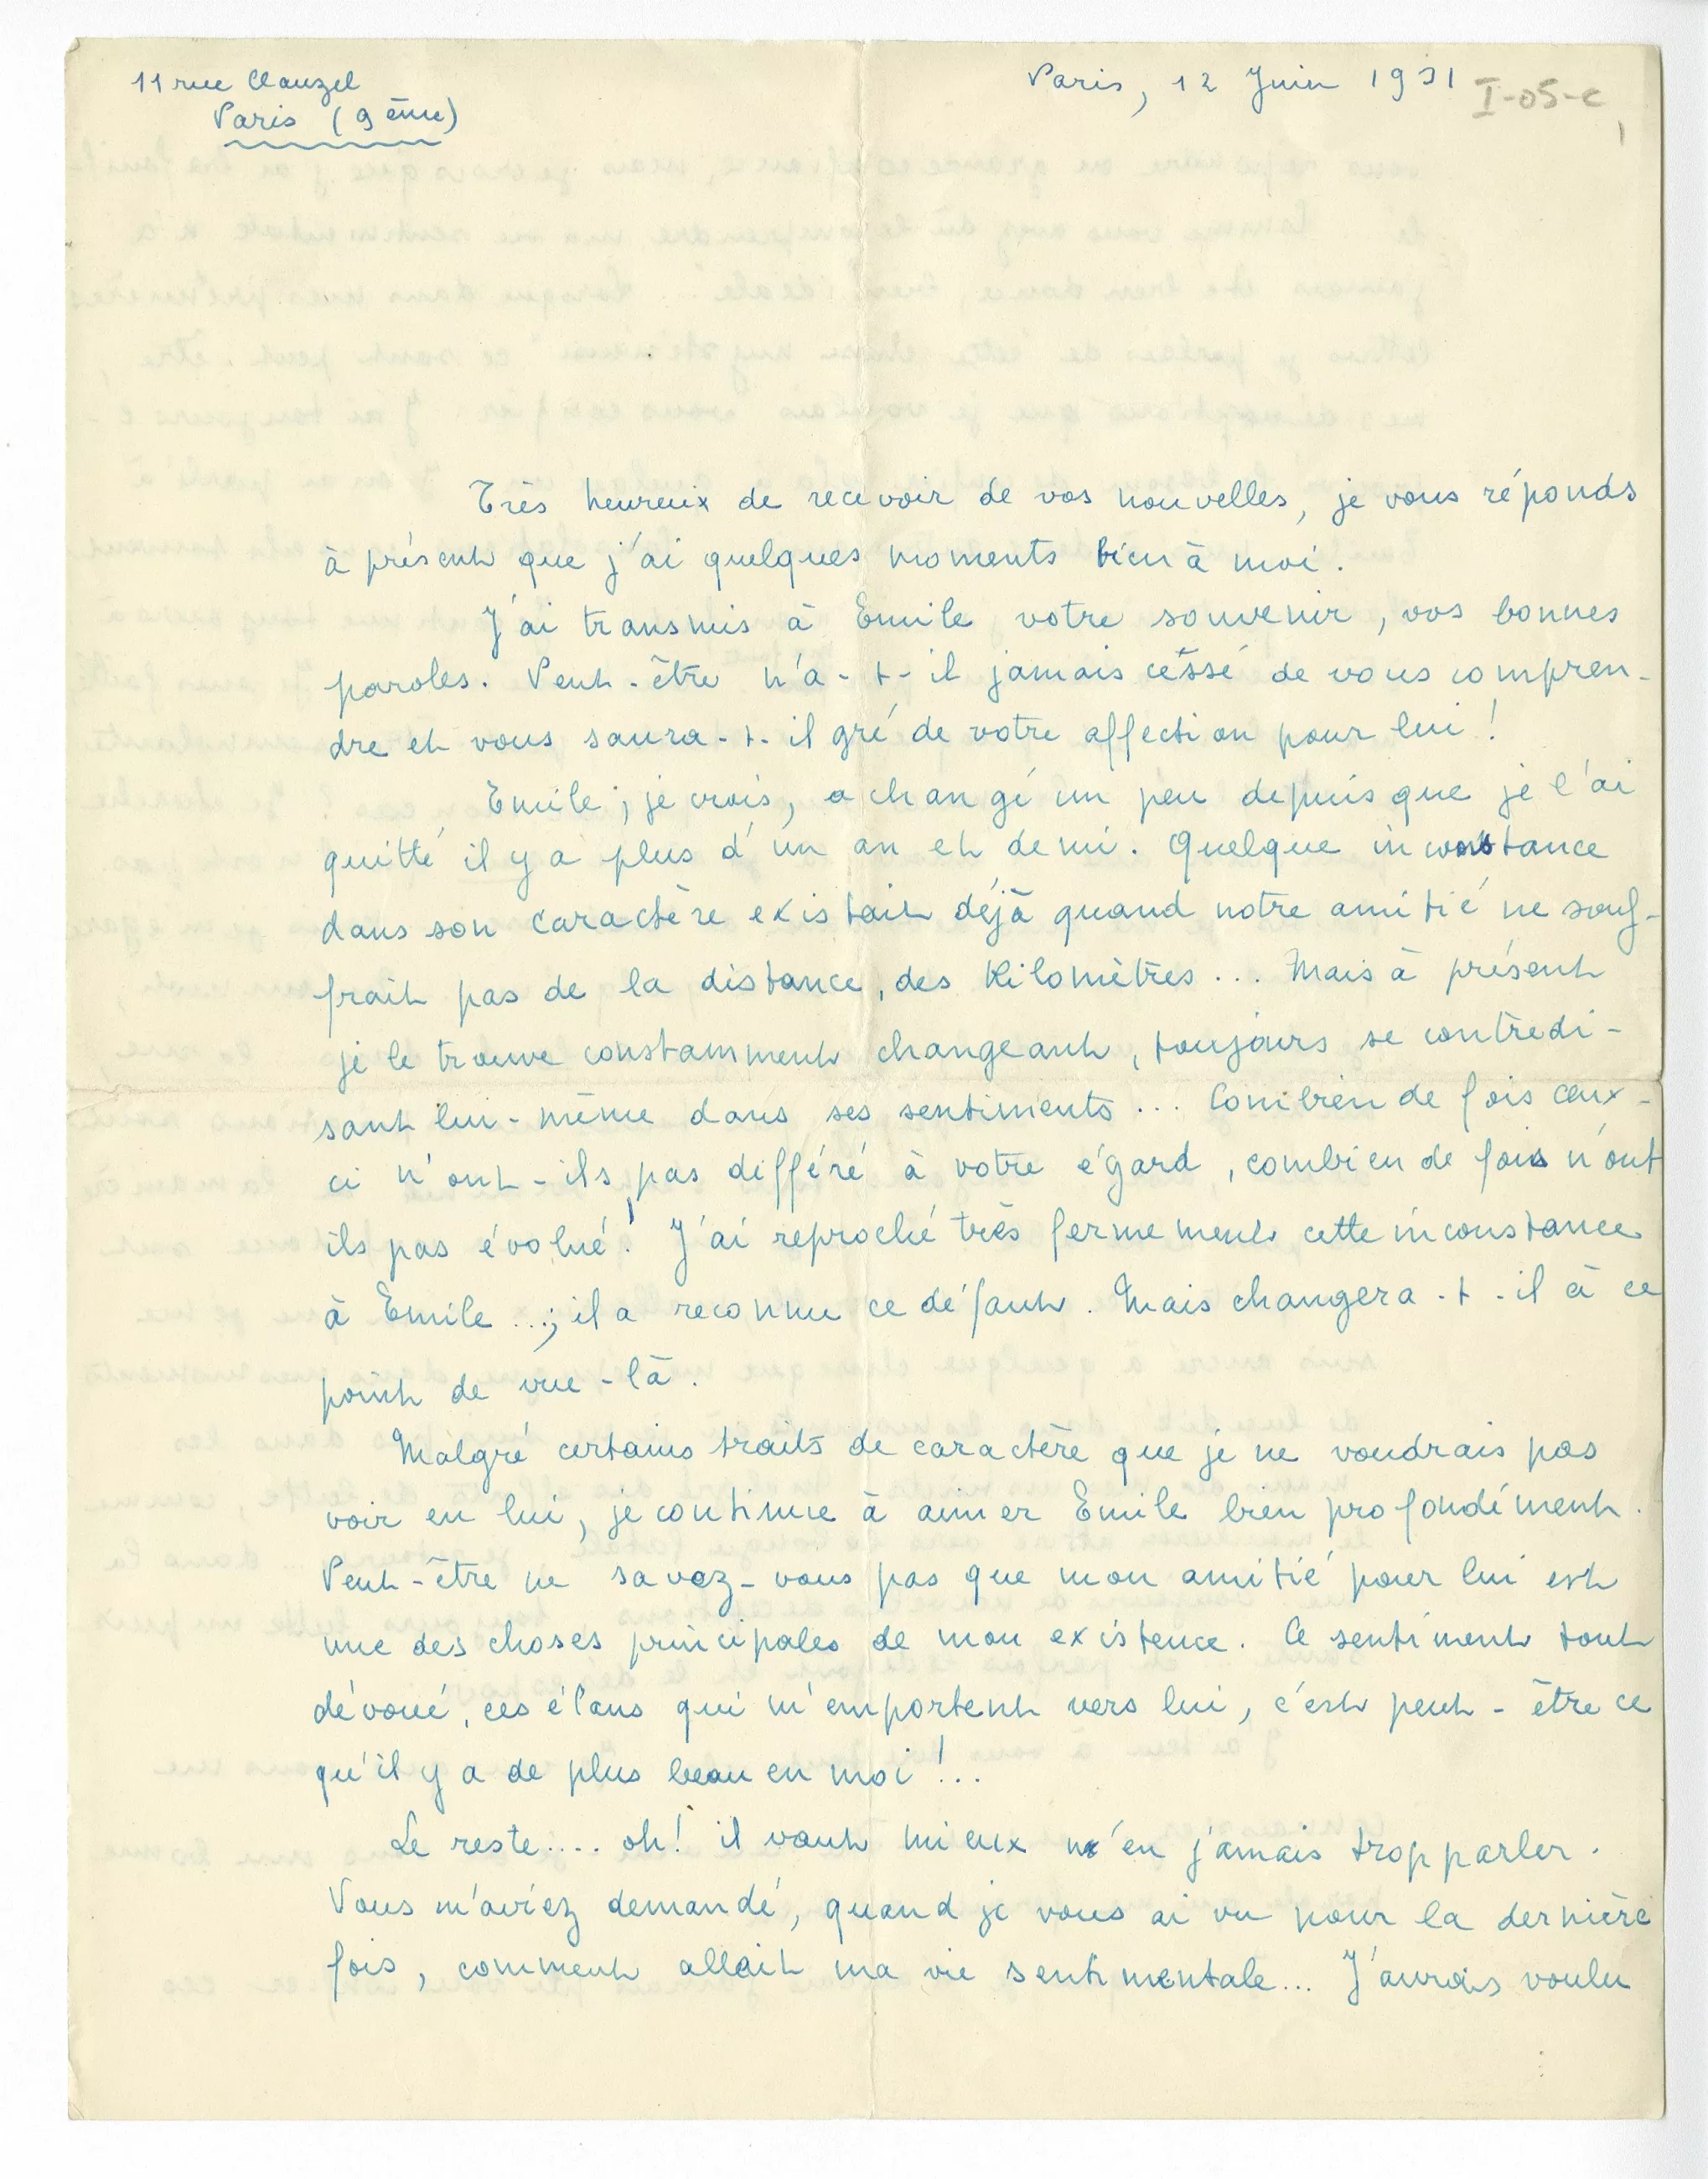 11 rue Clauzel
Paris (9ème)
Paris, 12 Juin 1931
I-05-c
Très heureux de recevoir de vos nouvelles, je vous réponds
à présent que j'ai quelques moments bien à moi.
J'ai transmis à Emile votre souvenir, vos bonnes
paroles. Peut-être n'a-t-il jamais cessé de vous compren-
dre et vous saura-t-il gré de votre affection pour lui !
Emile, je crois, a changé un peu depuis que je l'ai
quitté il y a plus d'un an et demi. Quelque inconstance
dans son caractère existait déjà quand notre amitié ne souf-
frait pas de la distance, des Kilomètres... Mais à présent
je le trouve constamment changeant, toujours se contredi-
sant lui-même dans ses sentiments... Combien de fois ceux-
ci n'ont-ils pas différé à votre égard, combien de fois n'ont
ils pas évolué ! J'ai reproché très fermement cette inconstance
à Emile ...; il a reconnu ce défaut. Mais changera-t-il à ce
point de vue-là.
Malgré certains traits de caractère que je ne voudrais pas
voir en lui, je continue à aimer Emile bien profondément.
Peut-être ne savez-vous pas que mon amitié pour lui est
une des choses principales de mon existence. Ce sentiment tout
dévoué, ces élans qui m'emportent vers lui, c'est peut-être ce
qu'il y a de plus beau en moi !..
Le reste.... oh! il vaut mieux n'en jamais trop parler.
Vous m'aviez demandé, quand je vous ai vu pour la dernière
fois, comment allait ma vie sentimentale... J'aurais voulu